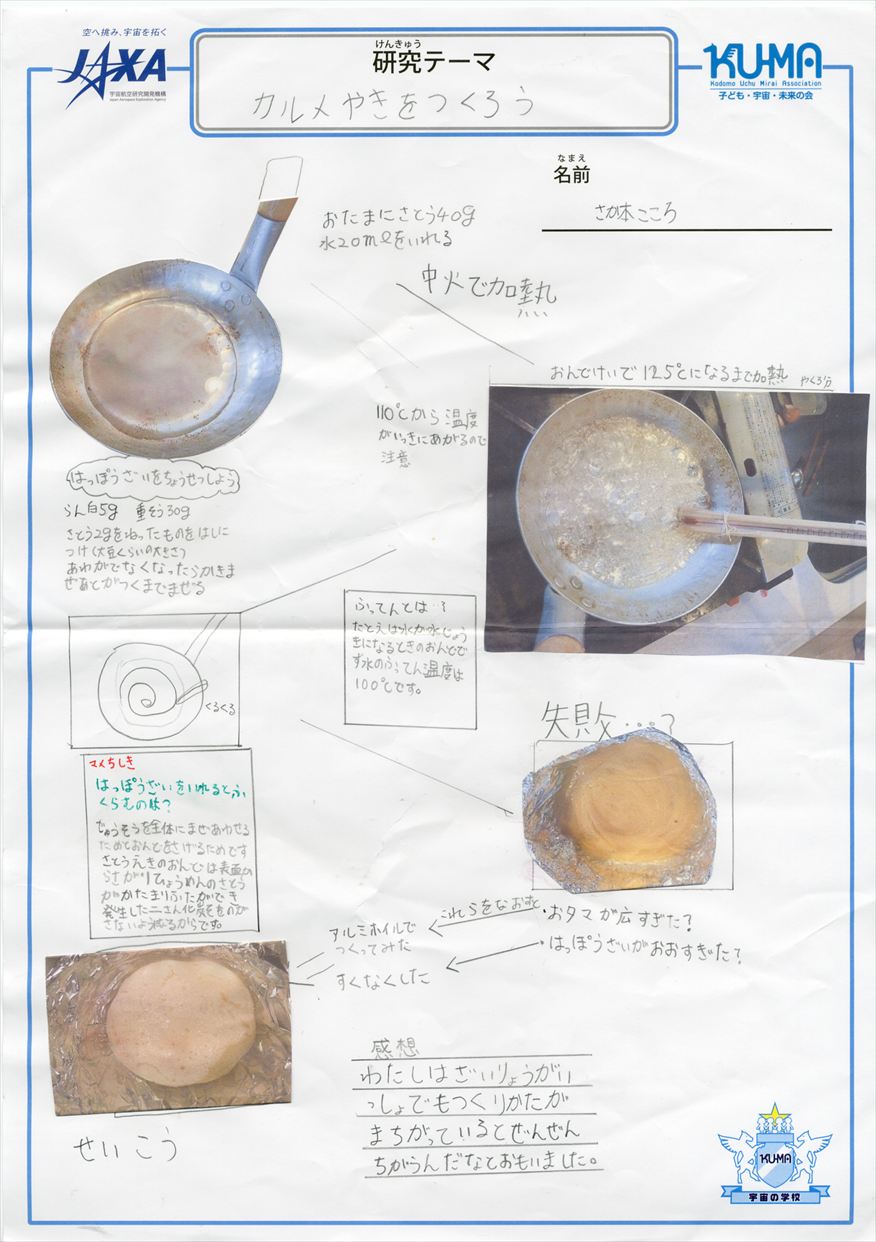 空へ挑み、宇宙を拓く
JAXA
宇宙航空研究開発機構
Japan Aerospace Exploration Agency
けんきゅう
研究テーマ
カルメやきをつくろう
KU-MA
Kodomo Uchu Mirai Association
子ども・宇宙・未来の会
なまえ
名前
さか本こころ
おたまにさとう40g
水20mlをいれる
中火で加熱
おんどけいで125℃になるまで加熱
110℃から温度
がいっきにあがるので
注意
はっぽうざいをちょうせつしよう
らん白5g 重そう30g
さとう2gをねったものをはしに
つけ(大豆くらいの大きさ)
あわがでなくなったらかきま
ぜあとがつくまでまぜる
くるくる
ふってんとは…?
たとえば水が水じょう
きになるときのおんどで
す水のふってん温度は
100℃です。
マメちしき
はっぽうざいをいれるとふ
くらむのは?
じゅうそうを全体にまぜあわせる
ためとおんどをさげるためです
さとうえきのおんどは表面か
らさがりひょうめんのさとう
がかたまりふたができ
発生した二さん化炭をものが
さないよう
からです。
失敗…?
・おタマが広すぎた?
・はっぽうざいがおおすぎた?
これらをなおすと
アルミホイルで
つくってみた
すくなくした
せいこう
感想
わたしはざいりょうがい
っしょでもつくりかたが
まちがっているとぜんぜん
ちがうんだなとおもいました。
KU-MA
宇宙の学校